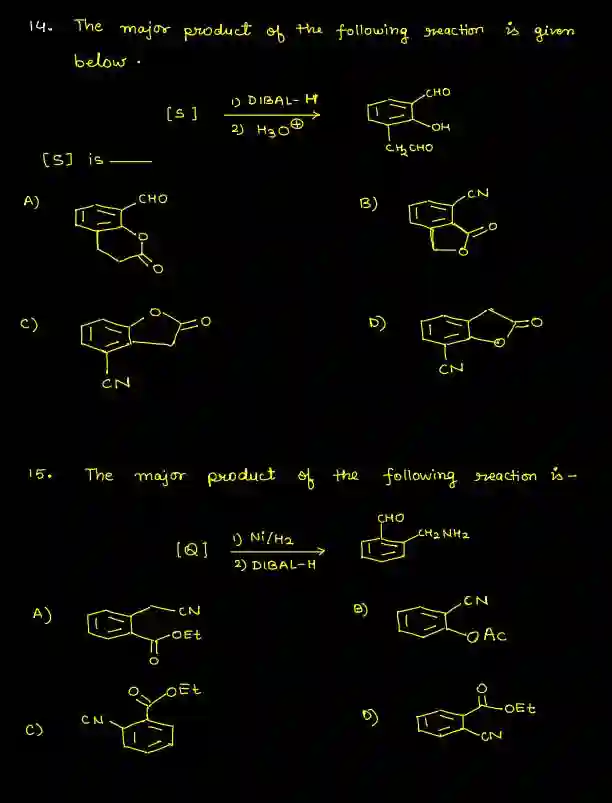 14. The major product of the following reaction is given
below.
[S] 1) DIBAL-H
2) H3O⊕
CHO
OH
CH2CHO
[S] is ——
A) CHO
O
O
B) CN
O
O
C) O
O
CN
D) O
O
CN
15. The major product of the following reaction is -
[Q] 1) Ni/H2
2) DIBAL-H
CHO
CH2NH2
A) CN
OEt
O
B) CN
OAc
C) O
OEt
CN
D) O
OEt
CN